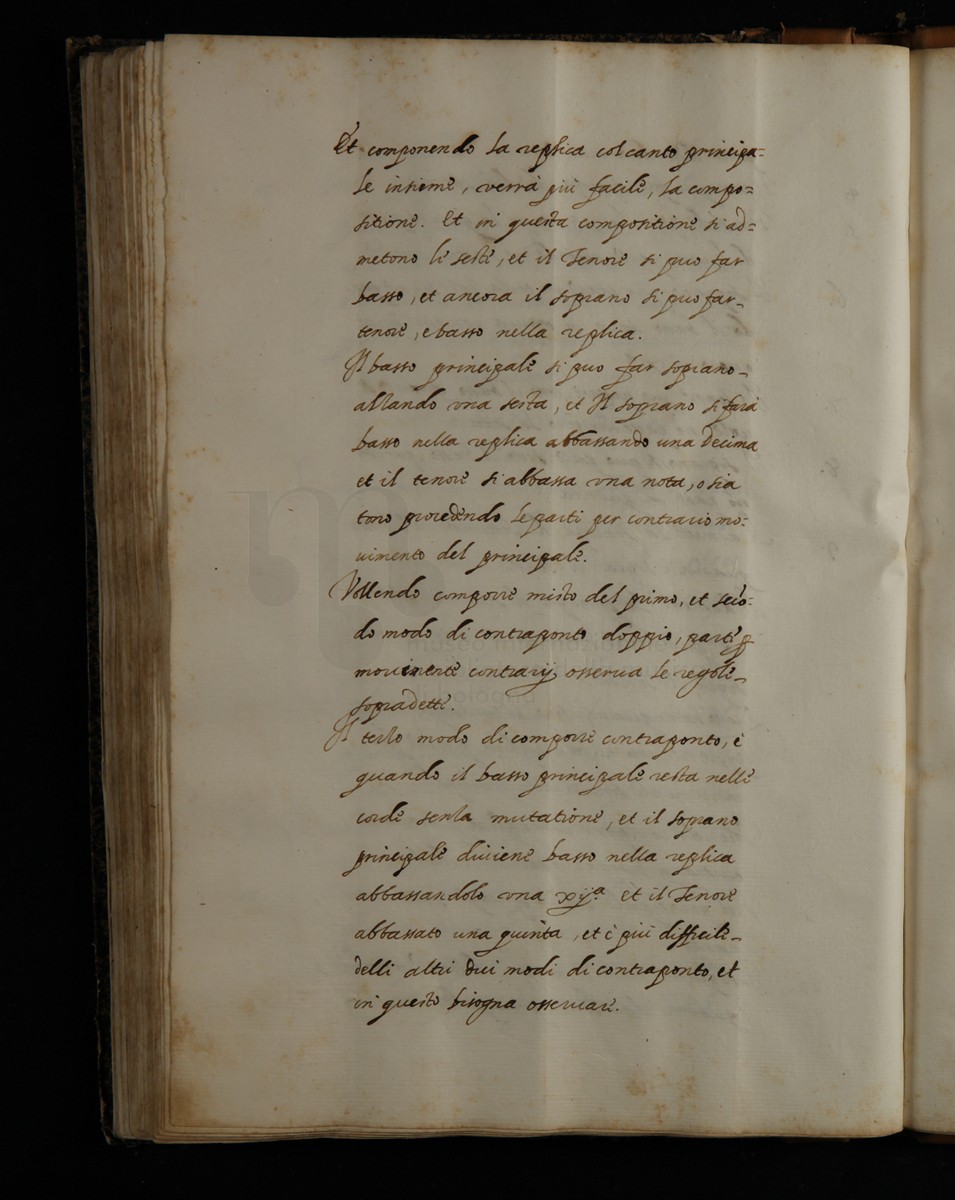 Et componendo la replica col canto principa=
le insieme, verrà più facile, la compo=
sitione. Et in questa compositione si ad=
metono le seste, et il Tenore si puo far
basso, et ancora il soprano si puo far-
tenore, e basso nella replica.
Il basso principale si puo far soprano-
alzando una sesta, et Il soprano si farà
basso nella replica abbassando una Decima
et il tenore si abbassa una nota, o sia
tono procedendo le parti per contrario mo=
uimento del principale.
Vollendo comporre misto del primo, et seco=
do modo di contraponto doppio, parti p
mouimente contrarij, osserua le regole-
sopradette.
Il terzo modo di comporre contraponto, è
quando il basso principale resta nelle
corde senza mutatione, et il soprano
principale diuiene basso nella replica
abbassandolo una xijª et il Tenore
abbassato una quinta, et è più difficile-
delli altri dui modi di contraponto, et
in questo bisogna osseruare.